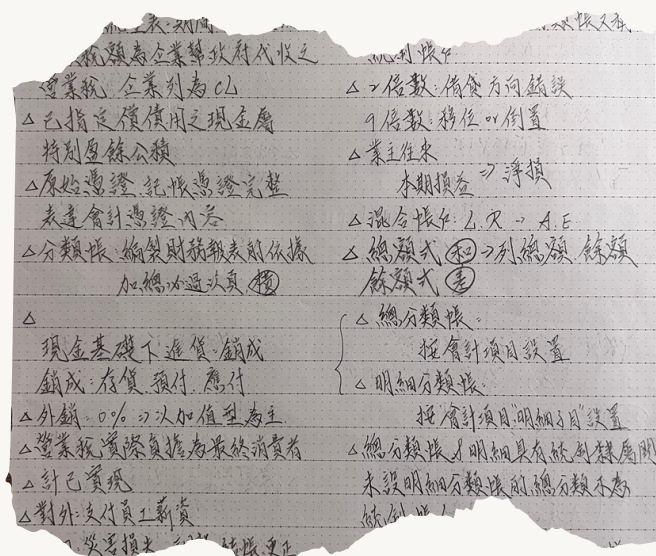 稅額為企業幫政府代收之
營業稅,企業列為CL
△已指定償債用之現金屬
特別盈餘公積
△原始憑證、記帳憑證完整
表達會計憑證內容
△分類帳:編製財務報表的依據
加總必過次頁 積
△
現金基礎下進貨:銷成
銷成:存貨、預付、應付
△外銷:0% => 以加值型為主
△營業稅實際負擔為最終消費者
△計已實現
△對外:支付員工薪資
災害損失
統制帳戶
△2倍數:借貸方向錯誤
9倍數:移位 or 倒置
△業主往來
本期損益 => 淨損
△混合帳戶:L.R -> A.E
△總額式 和 => 列總額、餘額
餘額式 差
△總分類帳:
按會計項目設置
△明細分類帳:
按會計項目"明細子目"設置
△總分類帳&明細具有統制隸屬關
未設明細分類帳的總分類不為
統制帳